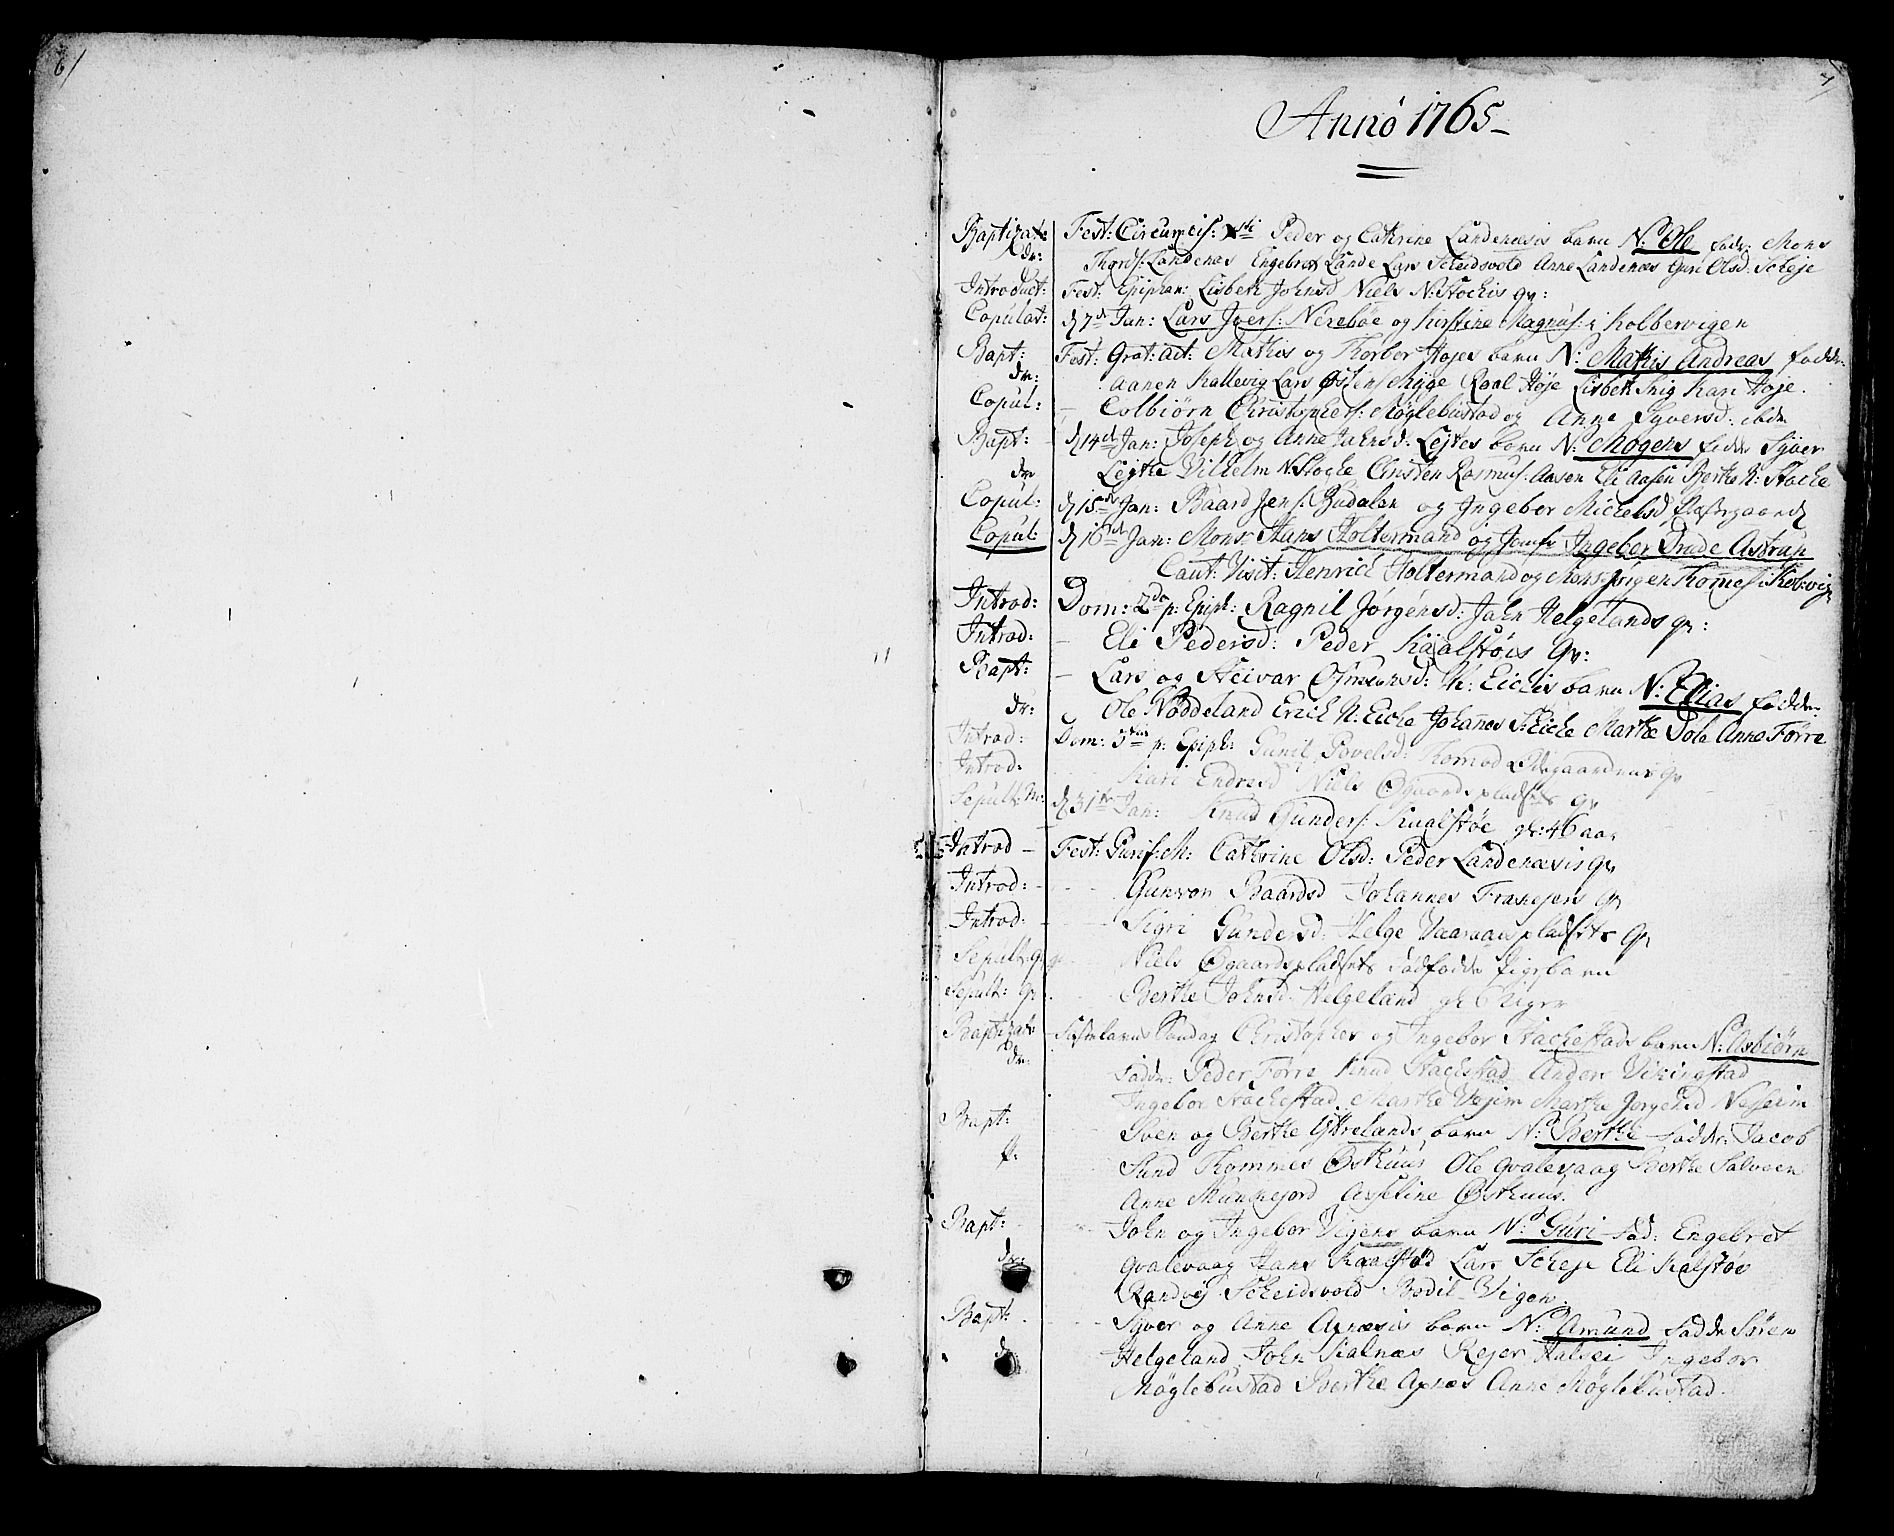 6/
7/
Annò 1765
Baptizat: Fest: Circumcis: Xsti Peder og Cathrine Landenæsis barn N: Ole fadr: Mons
dr: Thords: Landenæs Engebret Lande Lars Scheidsvold Anne Landenæs Guri Olsd: Scheje
Introduct: Fest: Epiphan: Lisbeth Johnsd Niels N: Stochis qv:
Copulat: d 7de Jan: Lars Jvers: Nerebøe og Kirstine Magnus: i Kolbervigen
Bapt: Fest: Grat: act: Mathis og Thorbor Højes barn N: Mathis Andreas fadr:
dr: Aanen Kallevig Lars Østensskyge Roal Høje Lisbeth Snig Kari Høje.
Copul: - Colbiørn Christophers: Møglebustad og Anne Syversd: ibdn
Bapt: d 14de Jan: Joseph og Anne Johnsd: Lejtes barn N: Mogens fadr Syver
dr Lejthe Vilhelm N: Stoche Christen Rasmus: Aasen Eli Aasen Berthe N: Stoche
Copul: d 15de Jan: Baard Jens: Budalen og Ingebor Michelsd Præstgaard
Copul: d 16de Jan: Mons: Hans Holtermand og Jomfr Ingeber Drude Astrup
Caut: Visit: Henrich Holtermand og Mons: Jørgen Thomes: Kolbvig
Introd: Dom: 2da p: Epiph: Ragnil Jørgensd: John Helgelands qv:
Introd: - Eli Pedersd: Peder Kaalstøis qv:
Bapt: - Lars og Heivar Osmunsd: N: Eichis barn N: Elias fadr:
dr: Ole Nøddeland Erich N: Eiche Johannes S: Eiche Marthe Dole Anne Førre
Introd: Dom: 3tia p: Epiph: Gunil Povelsd: Thomod Ødegaardens qv
Introd: Kari Endresd Niels Øgaards pladsits qv
Sepult: M: d 31te Jan: Knud Gunders: Kualstøe gl: 46 aar
Introd - Fest: Purif: M: Cathrine Olsd: Peder Landenæsis qv
Introd: - Gunvor Baardsd Johannes Frasejens qv
Introd: - Sigri Gundersd: Helge Vaaraas pladsits qv
Sepult: qv Niels Øgaards pladsits dødfødde Pigebarn
Sepult: qv: Berthe Johnsd: Helgeland gl: 6 Uger
Baptizat: Fastelavns Søndag Christopher og Ingebor Stachestads barn N: Osbiørn
dr: Fadr: Peder Førre Knud Stachestad Anders Vikingstad
Ingebor Stachestad Marthe Vejim Marthe Jørgensd Nesseim
Bapt: Sven og Berthe Yttrelands barn N: Berthe fadr: Jacob
p: Sund Thommes Østhuus Ole Qvalevaag Berthe Salveen
Anne Munchejord Asseline Østhuus.
Bapt: John og Ingebor Vigens barn N: Guri fad: Engebret
dr: Qvalevaag Hans Kaalstød Lars Scheje Eli Kalstøe
Randvej Scheidsvold Bodil Vigen.
Bapt: Syver og Anne Apnæsis barn N: Amund fadr Søren
dr: Helgeland John Kalnæs Rejer Halsei Ingebor
Møglebustad Berthe Apnæs Anne Møglebustad.